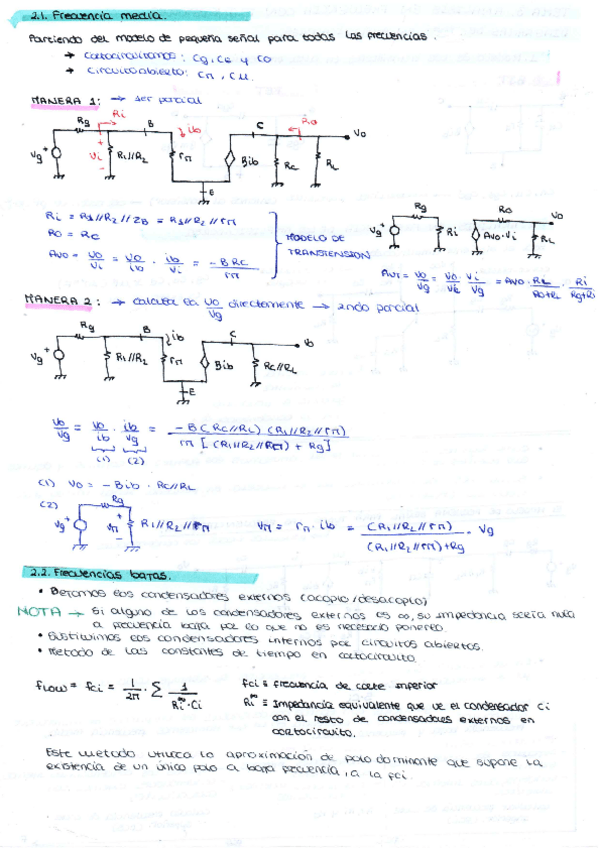 2.1. Frecuencia media.
Partiendo del modelo de pequeña señal para todas las frecuencias.
→ Cortocircuitamos: Cg, Ce y Co
→ Circuito abierto: Cπ, Cμ.
MANERA 1: → 1er parcial
Rg Ri B ib C Ro Vo
Vg + Vi R1//R2 rπ Bib Rc RL
E
Ri = R1//R2//ZB = R1//R2//rπ
Ro = Rc
Avo = Vo/Vi = Vo/ib · ib/Vi = -BRc/rπ
MODELO DE TRANSTENSION
Rg Ro Vo
Vg + Ri Avo·Vi RL
AvT = Vo/Vg = Vo/Vi · Vi/Vg = Avo · RL/(Ro+RL) · Ri/(Rg+Ri)
MANERA 2: → calcular la Vo/Vg directamente → 2ndo parcial
Rg B ib C Vo
Vg + R1//R2 rπ Bib Rc//RL
E
Vo/Vg = Vo/ib · ib/Vg = -B(Rc//RL)(R1//R2//rπ) / rπ[(R1//R2//rπ) + Rg]
(1) (2)
(1) Vo = -Bib · Rc//RL
(2) Rg
Vg + Vπ R1//R2//rπ Vπ = rπ · ib = (R1//R2//rπ)/((R1//R2//rπ)+Rg) · Vg
2.2. Frecuencias bajas.
• Dejamos los condensadores externos (acoplo/desacoplo)
NOTA → Si alguno de los condensadores externos es ∞, su impedancia sería nula
a frecuencia baja por lo que no es necesario ponerlo.
• Sustituimos los condensadores internos por circuitos abiertos.
• Metodo de las constantes de tiempo en cortocircuito.
flow = fci = 1/2π · Σ 1/(Ri∞·Ci)
fci ≡ frecuencia de corte inferior
Ri∞ ≡ Impedancia equivalente que ve el condensador Ci
con el resto de condensadores externos en
cortocircuito.
Este metodo utiliza la aproximación de polo dominante que supone la
existencia de un único polo a baja frecuencia, a la fci.